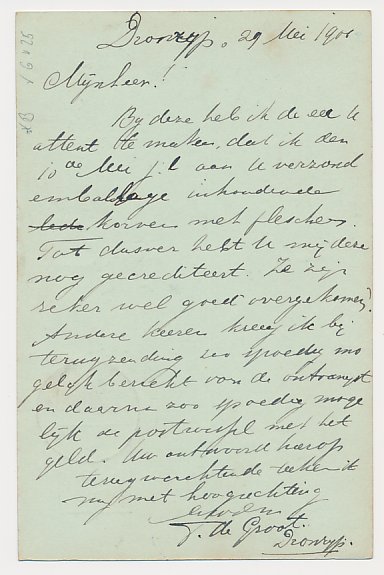 Dronryp, 29 Mei 1901
Mijnheer!
By deze heb ik de eer U
attent te maken, dat ik den
10de Mei j.l. aan U verzond
emballage inhoudende
korven met flesschen.
Tot dusver hebt U mij deze
nog gecrediteert. Ze zijn
zeker wel goed overgekomen?
Andere keeren kreeg ik bij
terugzending zoo spoedig mo
gelijk bericht van de ontvangst
en daarna zoo spoedig moge
lijk de postwissel met het
geld. Uw antwoord hierop
terugwachtende teeken ik
mij met hoogachting
T. de Groot.
Dronryp.